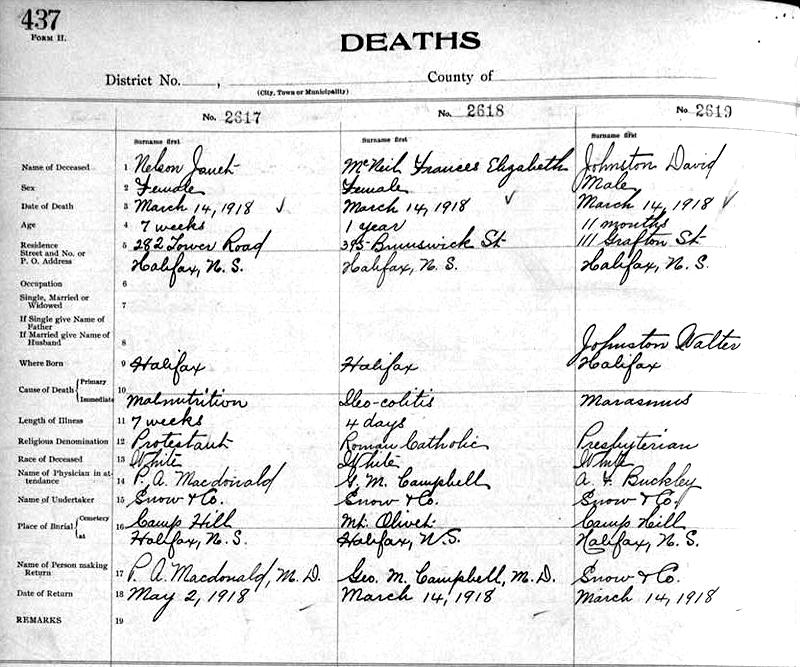 437
FORM II.
DEATHS
District No. , County of
(City, Town or Municipality)
No. 2617 No. 2618 No. 2619
Surname first Surname first Surname first
Name of Deceased 1 Nelson Janet McNeil Frances Elizabeth Johnston David
Sex 2 Female Female Male
Date of Death 3 March 14, 1918 ✓ March 14, 1918 ✓ March 14, 1918 ✓
Age 4 7 weeks 1 year 11 months
Residence 5 282 Tower Road 395 Brunswick St 111 Grafton St
Street and No. or
P. O. Address Halifax, N. S. Halifax, N. S. Halifax, N. S.
Occupation 6
Single, Married or
Widowed 7
If Single give Name of
Father
If Married give Name of
Husband 8 Johnston Walter
Where Born 9 Halifax Halifax Halifax
Cause of Death { Primary 10
Immediate Malnutrition Ileo-colitis Marasmus
Length of Illness 11 7 weeks 4 days
Religious Denomination 12 Protestant Roman Catholic Presbyterian
Race of Deceased 13 White White White
Name of Physician in at-
tendance 14 P. A. Macdonald G. M. Campbell A. F. Buckley
Name of Undertaker 15 Snow & Co. Snow & Co. Snow & Co.
Place of Burial { Cemetery 16 Camp Hill Mt. Olivet Camp Hill
at Halifax, N. S. Halifax, N. S. Halifax, N. S.
Name of Person making
Return 17 P. A. Macdonald, M. D. Geo. M. Campbell, M. D. Snow & Co.
Date of Return 18 May 2, 1918 March 14, 1918 March 14, 1918
REMARKS 19